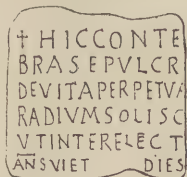 ✝ HICCONTE
BRASEPVLCR
DEVITAPERPETVA
RADIVMSOLISC
VTINTERELECT
ANSVIET DIES